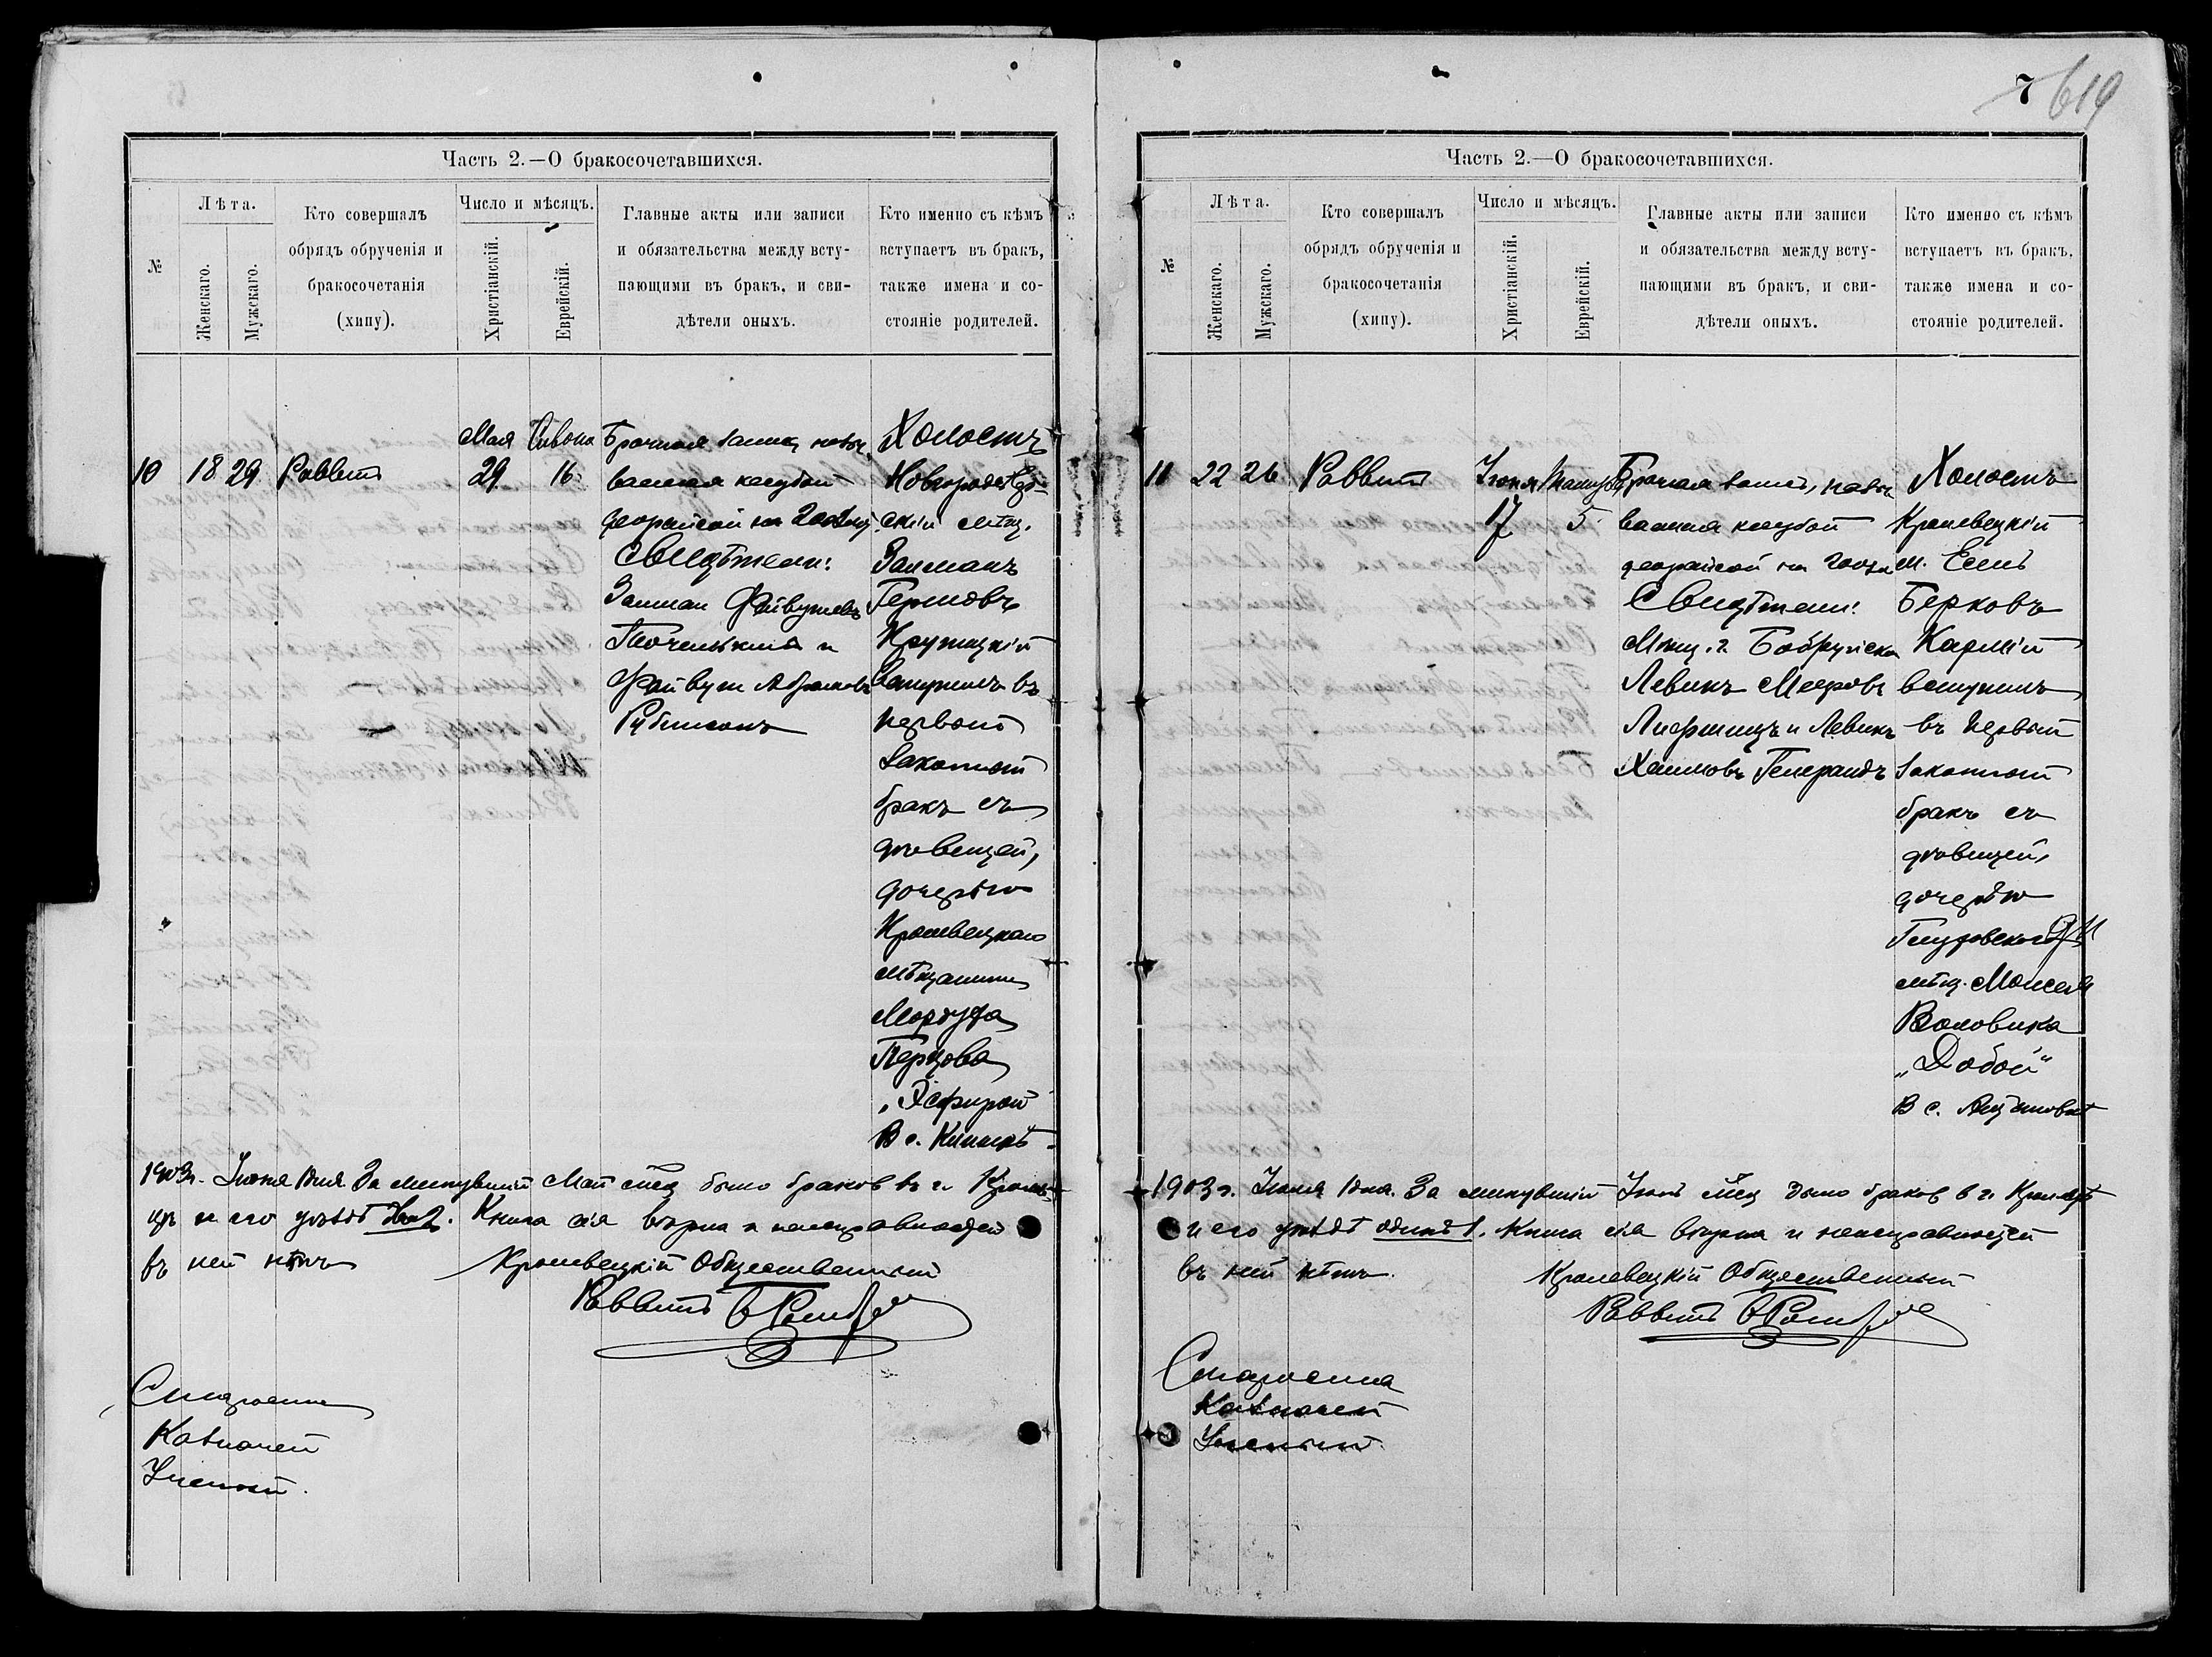 7 619
Часть 2.—О бракосочетавшихся.
№
Лѣта.
Женскаго.
Мужскаго.
Кто совершалъ
обрядъ обрученія и
бракосочетанія
(хипу).
Число и мѣсяцъ.
Христіанскій.
Еврейскій.
Главные акты или записи
и обязательства между всту-
пающими въ бракъ, и сви-
дѣтели оныхъ.
Кто именно съ кѣмъ
вступаетъ въ бракъ,
также имена и со-
стояніе родителей.
10
18
29
Раввинъ
Мая
29
Сивона
16
Брачная запись назы
ваемая кесубой
деорайсой на 200
Свидѣтели:
Залман Файвушевъ
и
Файвуш Абрамовъ
Рубинсонъ
Холостъ
Новгородсѣ-
скій мѣщ.
Залманъ
Гершовъ
Крупицкій
вступилъ въ
первой
законной
бракъ съ
дѣвицей,
дочерью
Кролевецкаго
мѣщанина
Мордуха
Перцова
„Эсфирой
В с.
1903г. Іюня 1 дня. За минувшій Май мѣц было браков въ г. Кролев
цѣ и его уѣздѣ два 2. Книга сія вѣрна и неисправностей
въ ней нѣтъ
Кролевецкій Общественный
Раввинъ
Староста
Казначей
Ученый.
Часть 2.—О бракосочетавшихся.
№
Лѣта.
Женскаго.
Мужскаго.
Кто совершалъ
обрядъ обрученія и
бракосочетанія
(хипу).
Число и мѣсяцъ.
Христіанскій.
Еврейскій.
Главные акты или записи
и обязательства между всту-
пающими въ бракъ, и сви-
дѣтели оныхъ.
Кто именно съ кѣмъ
вступаетъ въ бракъ,
также имена и со-
стояніе родителей.
11
22
26
Раввинъ
Іюня
17
Тамуза
5
Брачная запись, назы
ваемая кесубой
деорайсой на 200
Свидѣтели:
Мѣщ. г. Бобруйска
Левикъ Мееровъ
Лифшицъ и Левикъ
Хаимовъ
Холостъ
Кролевецкій
м.
Берковъ
вступилъ
въ первый
законный
бракъ съ
дѣвицей,
дочерью
Глуховского
мѣщ. Моисея
Воловика
„Добой"
В с.
1903г. Іюля 1 дня. За минувшій Іюнь мѣц было браков в г. Кролевцѣ
и его уѣздѣ одинъ 1. Книга сія вѣрна и неисправностей
въ ней нѣтъ.
Кролевецкій Общественный
Раввинъ
Староста
Казначей
Ученый.